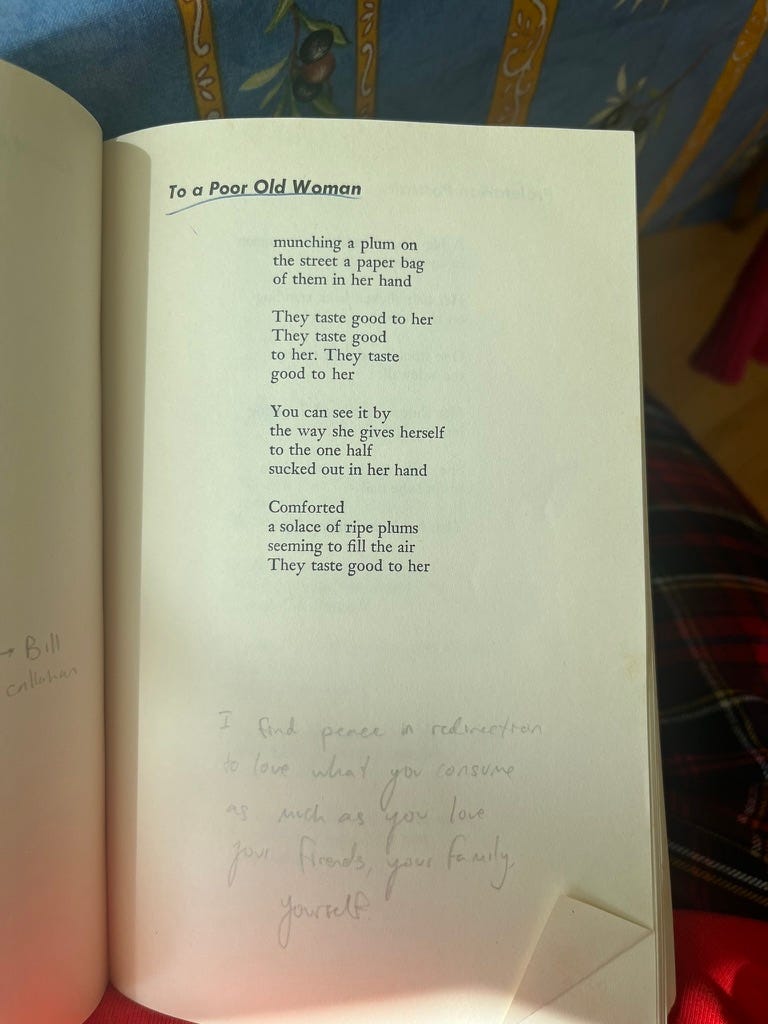 To a Poor Old Woman
munching a plum on
the street a paper bag
of them in her hand
They taste good to her
They taste good
to her. They taste
good to her
You can see it by
the way she gives herself
to the one half
sucked out in her hand
Comforted
a solace of ripe plums
seeming to fill the air
They taste good to her
→ Bill
Callahan
I find peace in redirection
to love what you consume
as much as you love
your friends, your family,
yourself.